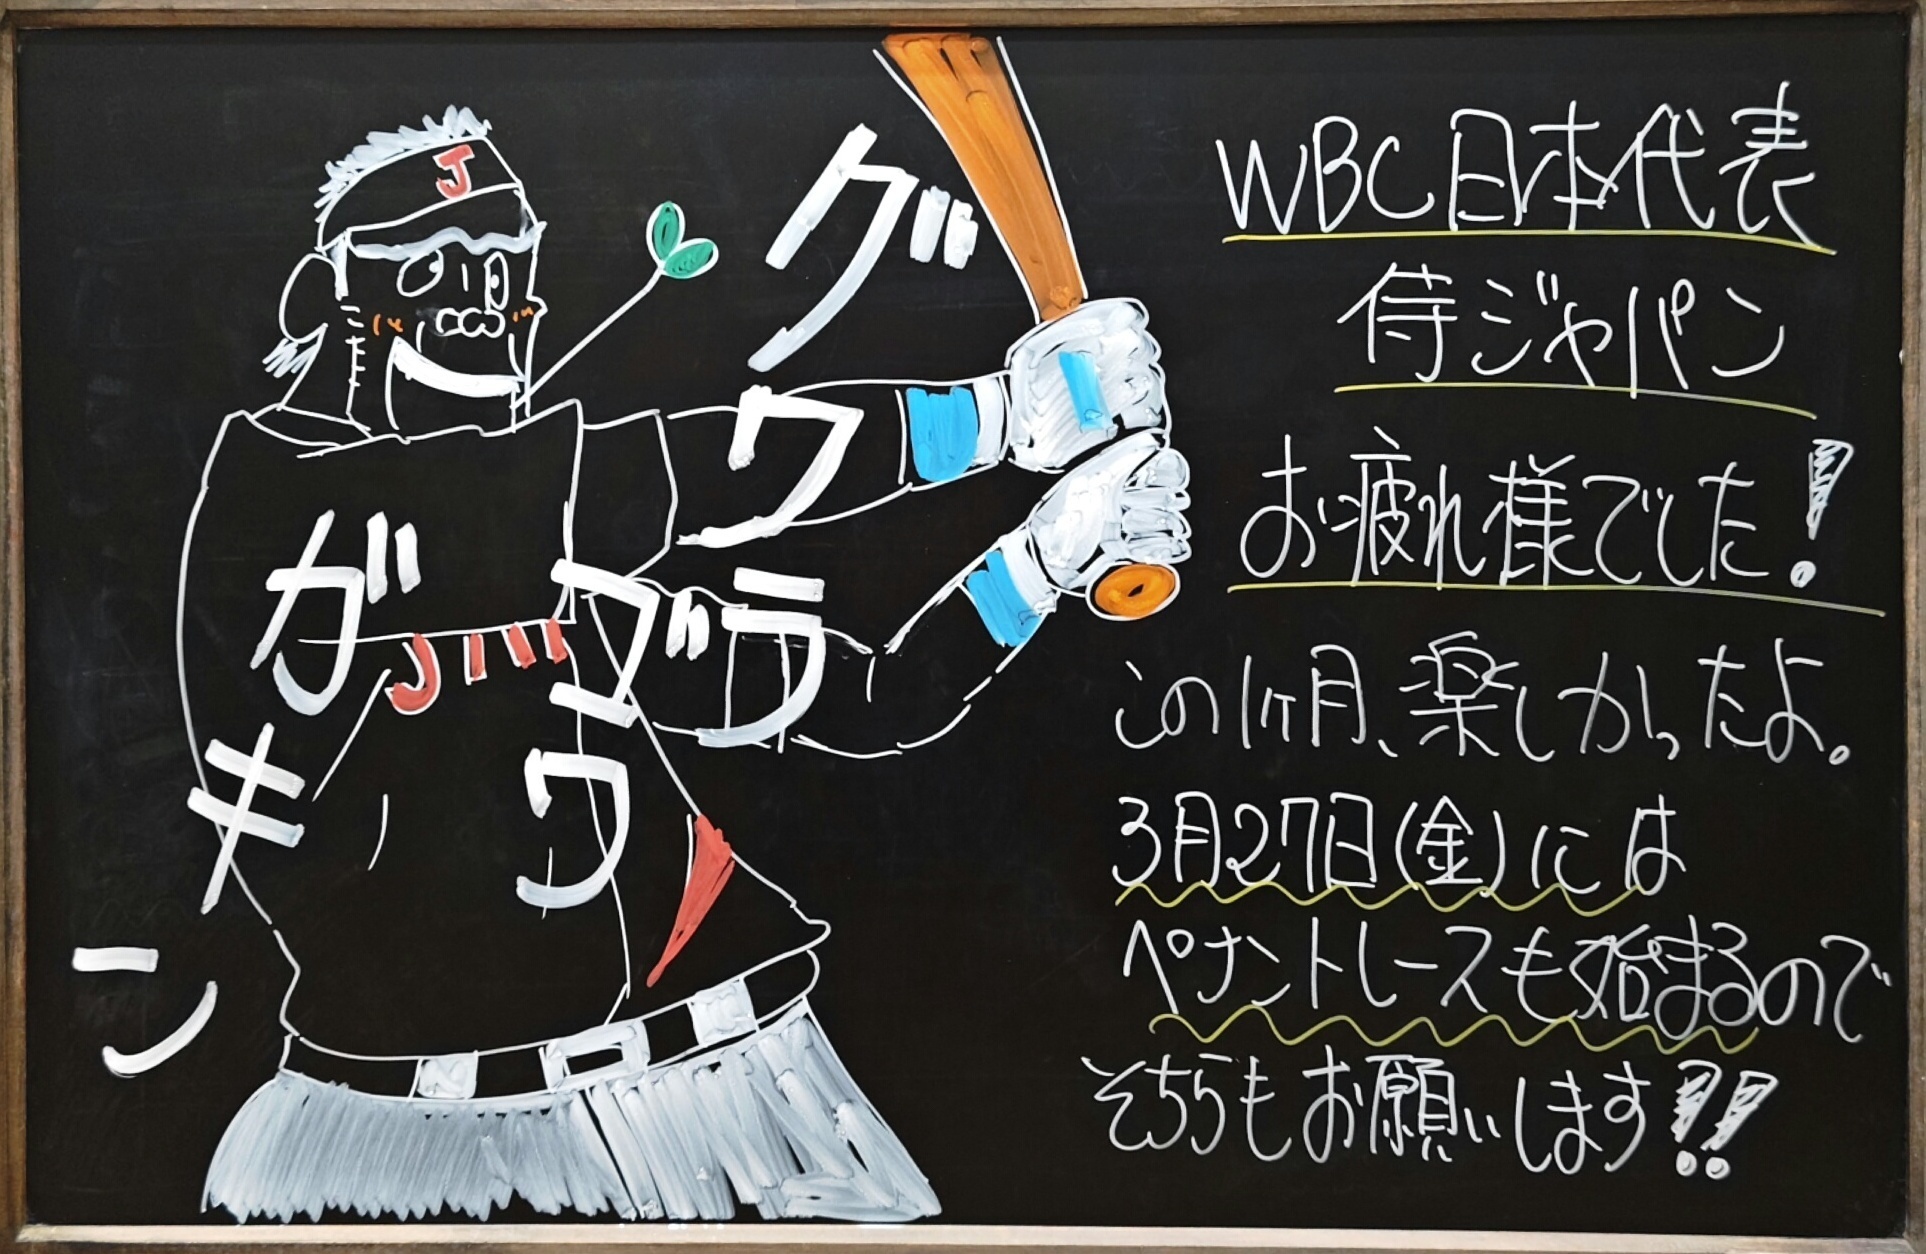 WBC日本代表
侍ジャパン
お疲れ様でした!
この1ヶ月、楽しかったよ。
3月27日(金)には
ペナントレースも始まるので
そちらもお願いします!!
グワラ
ゴワ
ガキーン
J
J